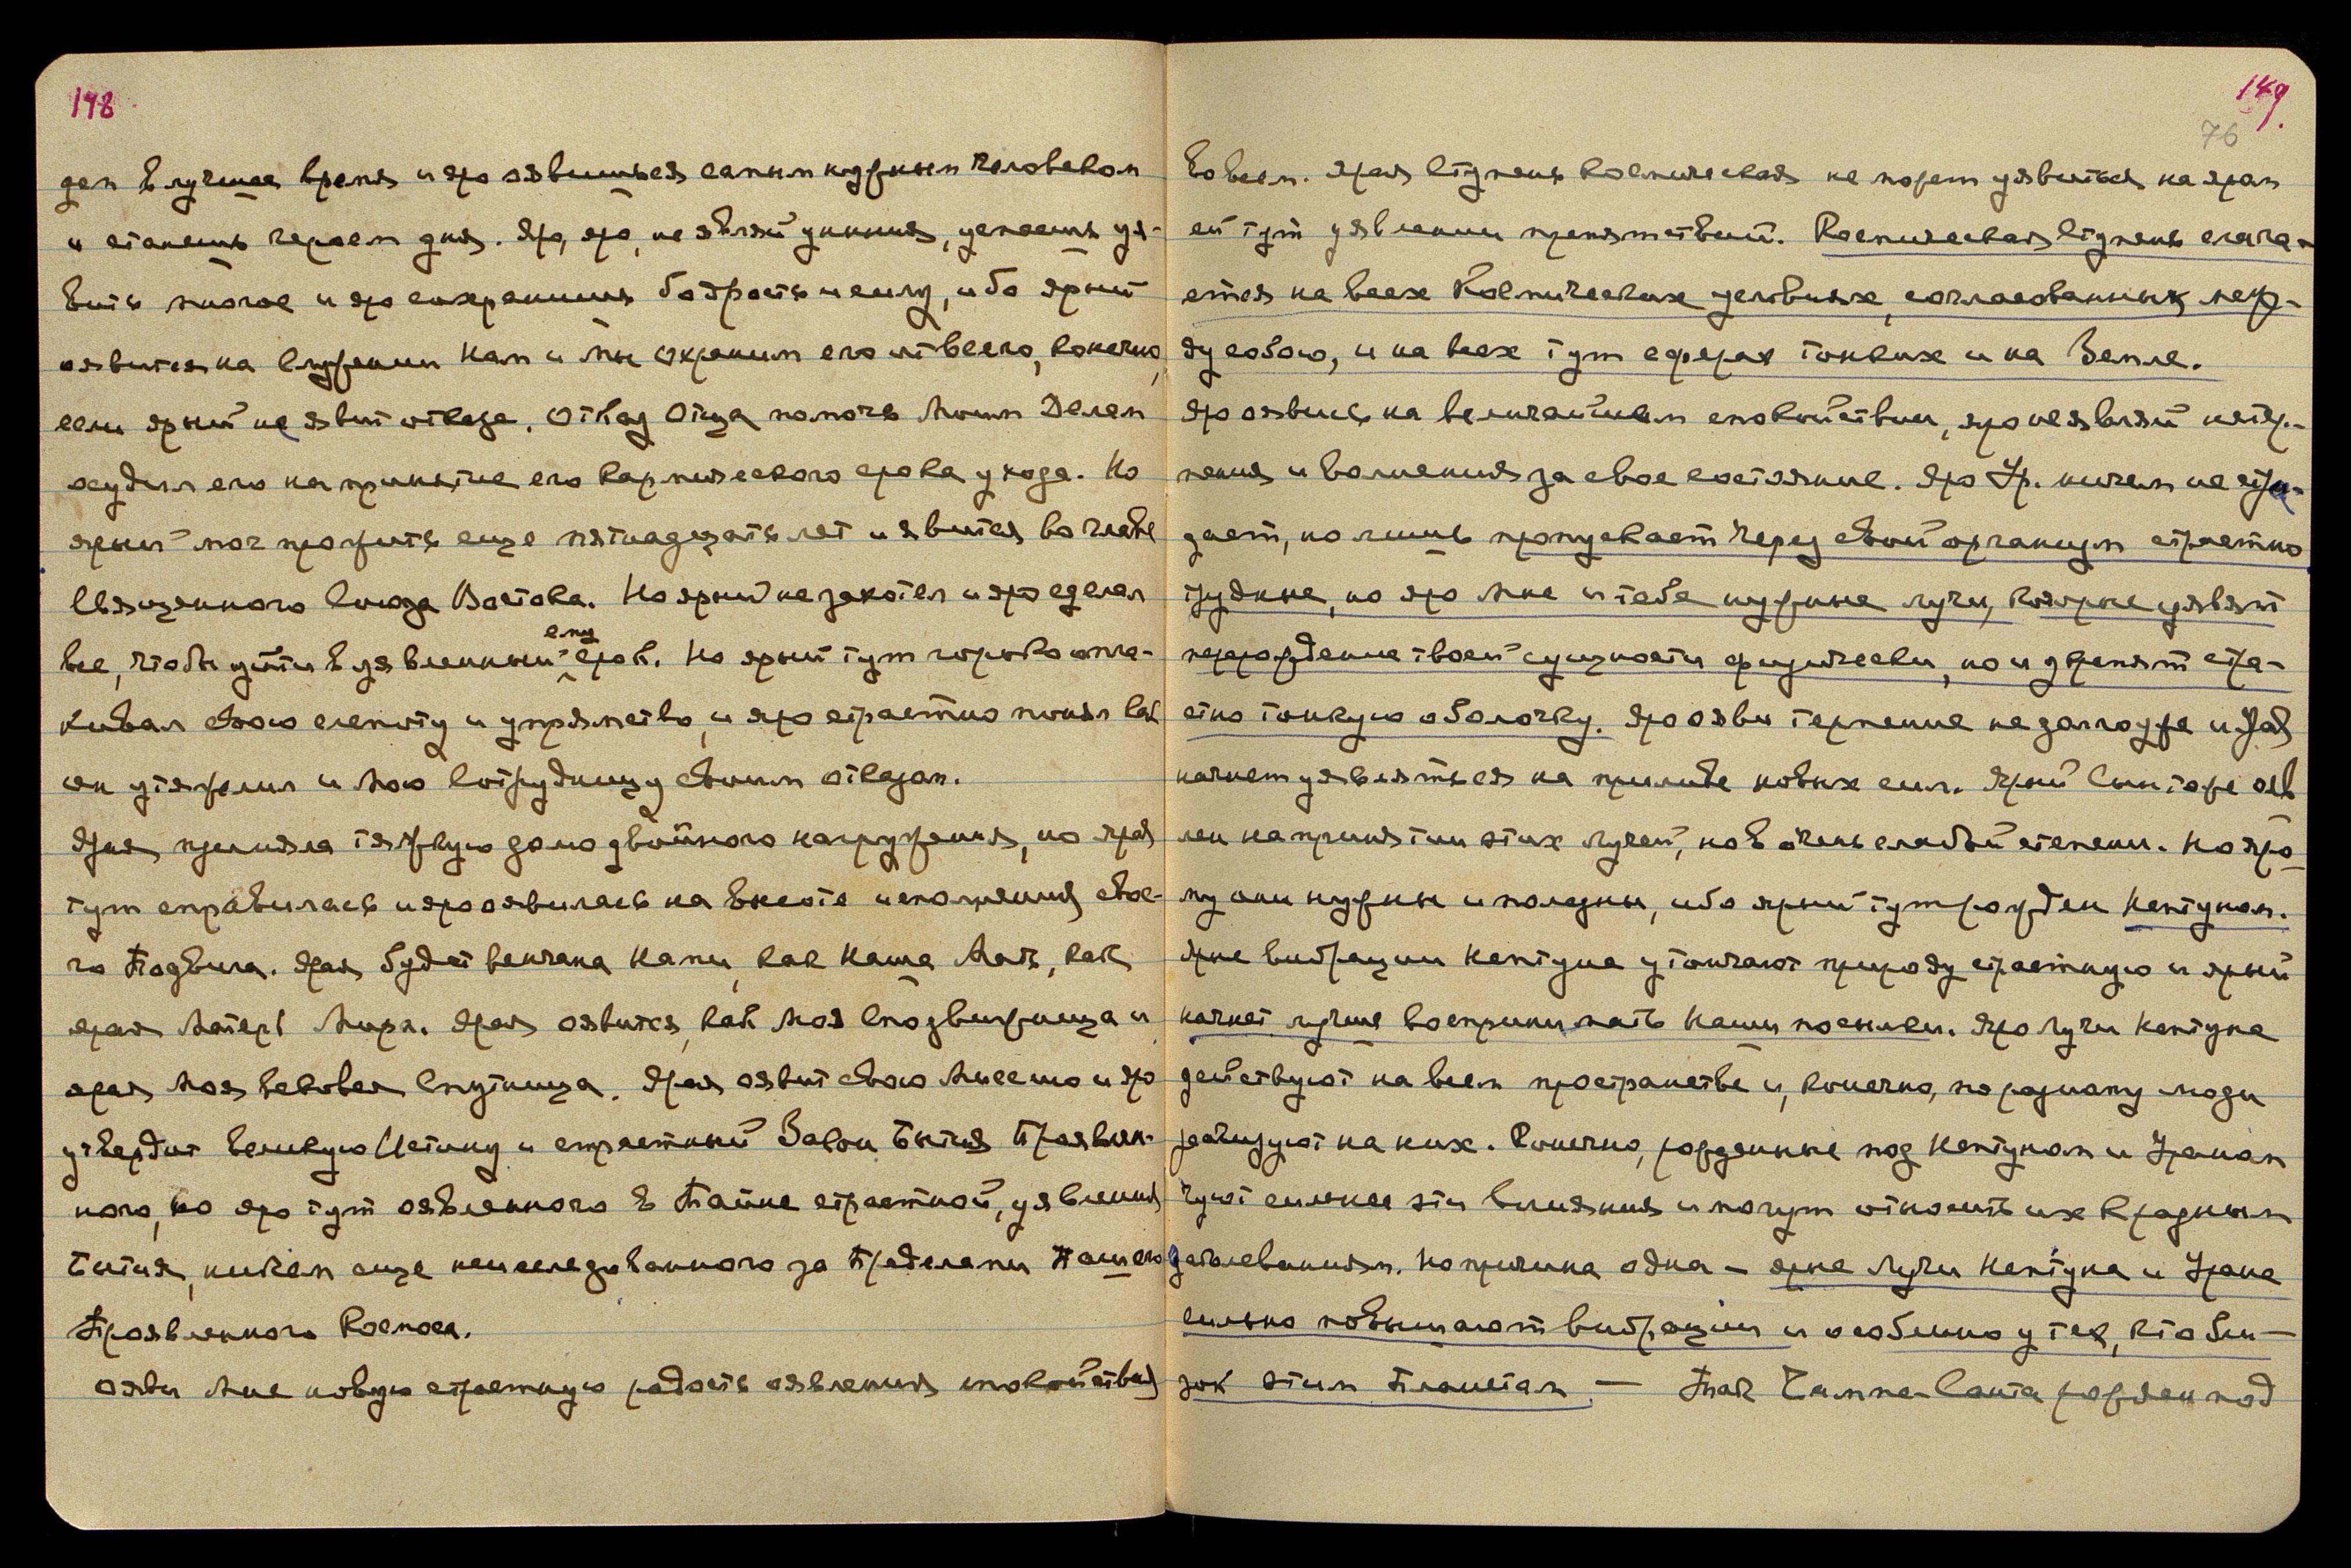 148
ден в лучшее время и яро оявишься самым нужным человеком
и станешь героем дня. Яро, яро, не являй уныния, успеешь уя-
вить многое и яро сохранишь бодрость и силу, ибо ярый
оявится на служении Нам и Мы охраним его от всего, конечно,
если ярый не явит отказа. Отказ Отца помочь Моим Делам
осудил его на принятие его кармического срока ухода. Но
ярый мог прожить еще пятнадцать лет и явиться во главе
Священного Союза Востока. Но ярый не захотел и яро сделал
все, чтобы уйти в уявленный ему срок. Но ярый тут горько опла-
кивал свою слепоту и упрямство, и яро страстно понял как
он утяжелил и Мою Сотрудницу своим отказом.
Ярая приняла тяжкую долю двойного нагружения, но ярая
тут справилась и яро оявилась на высоте исполнения свое-
го Подвига. Ярая будет венчана Нами, как Наша Мать, как
ярая Матерь Мира. Ярая оявится, как Моя Сподвижница и
ярая Моя Вековая Спутница. Ярая оявит свою Миссию и яро
утвердит великую Истину и страстный Закон Бытия Проявлен-
ного, но яро тут оявленного в Тайне страстной, уявления
Бытия, никем еще неисследованного за Пределами Нашего
Проявленного Космоса.
Ояви Мне новую страстную радость оявления спокойствия
149.
76
во всем. Ярая ступень космическая не может уявиться на ярам
ей тут уявлении препятствий. Космическая ступень слага-
ется на всех Космических условиях, согласованных меж-
ду собою, и на всех тут сферах тонких и на Земле.
Яро оявись на величайшем спокойствии, яро не являй нетер-
пения и волнения за свое состояние. Яро Ур. ничем не стра-
дает, но лишь пропускает через свой организм страстно
трудные, но яро Мне и тебе нужные лучи, которые уявят
перерождение твоей сущности физически, но и укрепят стра-
стно тонкую оболочку. Яро ояви терпение не задолго уже и Ура
начнет уявляться на приливе новых сил. Ярый Сын тоже ояв
лен на принятии этих лучей, но в очень слабой степени. Но яро-
му они нужны и полезны, ибо ярый тут рожден Нептуном.
Ярые вибрации Нептуна утончают природу страстную и ярый
начнет лучше воспринимать Наши посылки. Яро лучи Нептуна
действуют на всем пространстве и, конечно, по разному люди
реагируют на них. Конечно, рожденные под Нептуном и Ураном
чуют сильнее эти влияния и могут относить их к разным
заболеваниям. Но причина одна — ярые лучи Нептуна и Урана
сильно повышают вибрации и особенно у тех, кто бли-
зок этим Планетам. — Так Чампа-Санта рожден под